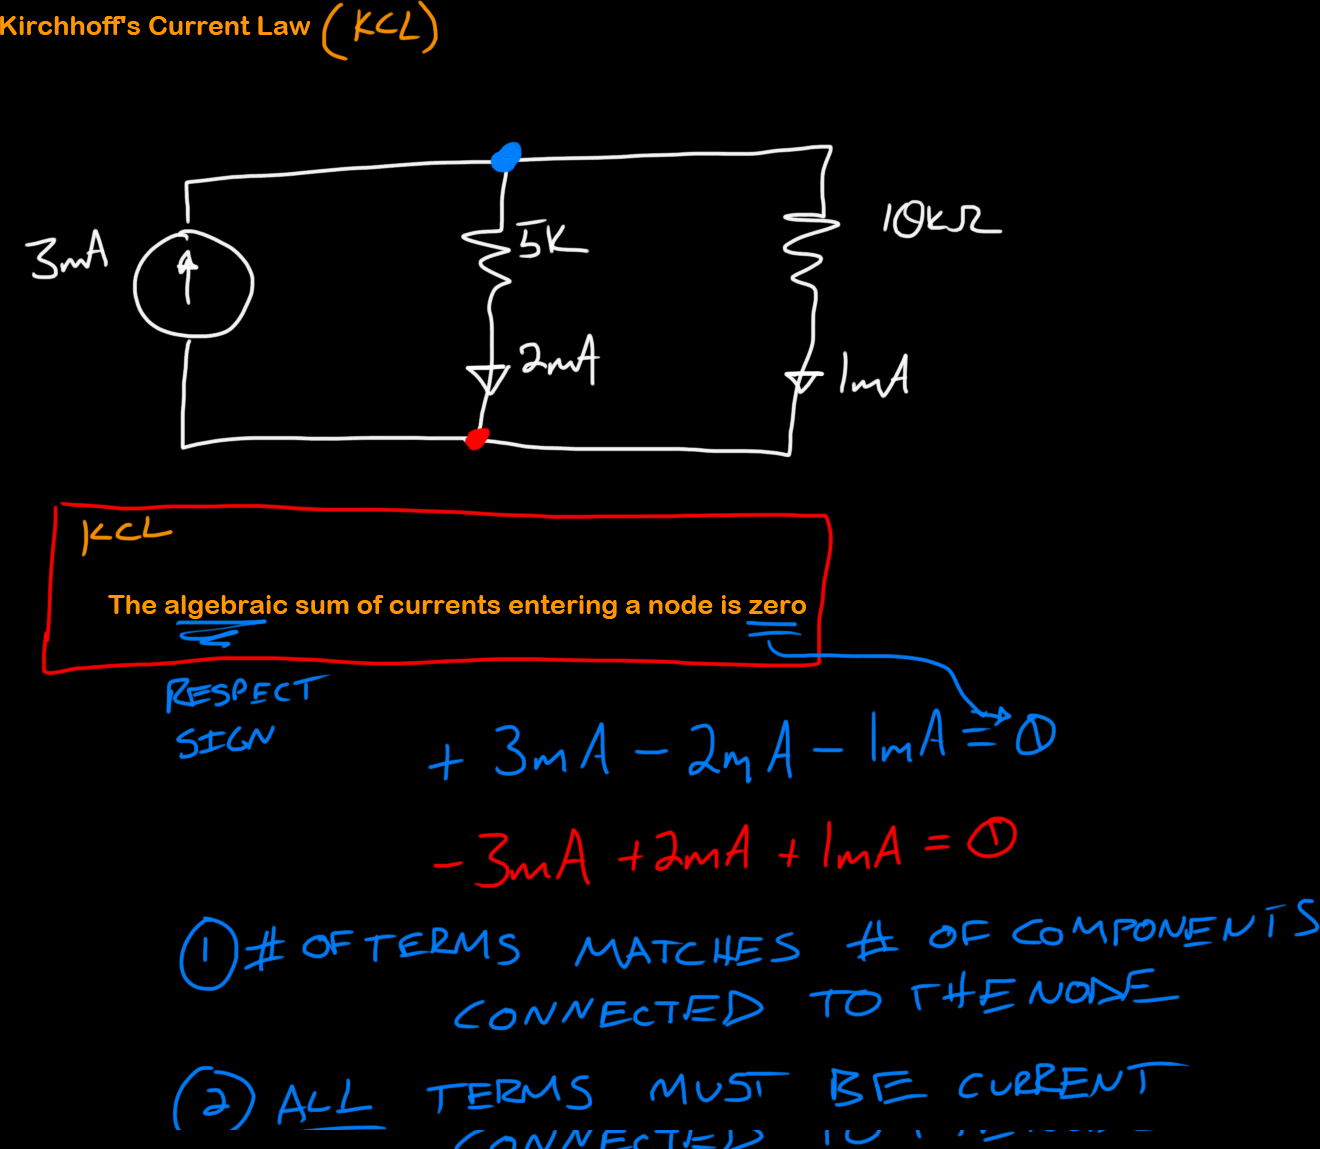 Kirchhoff's Current Law (KCL)
3mA
5K
10kΩ
2mA
1mA
KCL
The algebraic sum of currents entering a node is zero
RESPECT
SIGN
+ 3mA - 2mA - 1mA = 0
- 3mA + 2mA + 1mA = 0
① # OF TERMS MATCHES # OF COMPONENTS
CONNECTED TO THE NODE
② ALL TERMS MUST BE CURRENT
CONNECTED TO